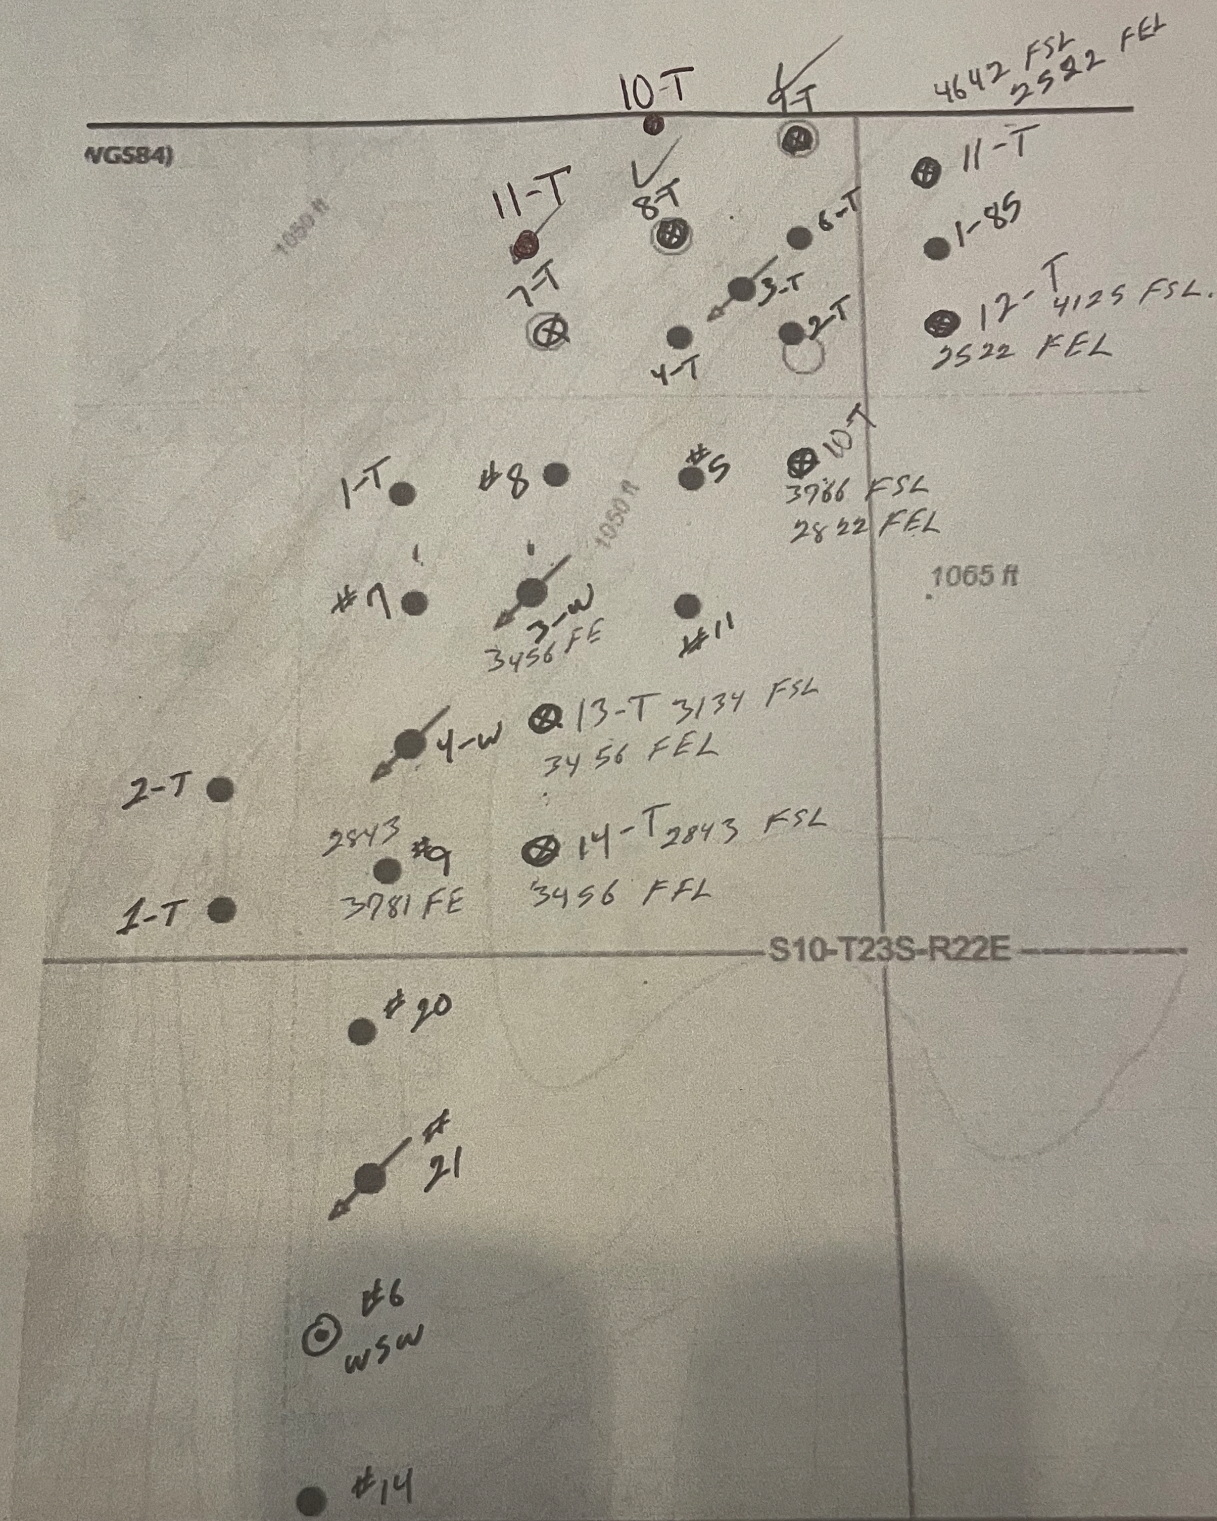 4642 FSL
2522 FEL
10-T
9-T
WGS84)
11-T
11-T
8-T
6-T
1-85
1050 ft
7-T
3-T
12-T
4125 FSL.
2-T
2522 FEL
4-T
10-T
1-T
#8
#5
3766 FSL
2822 FEL
1050 ft
1065 ft
#7
3-W
3456 FE
#11
13-T 3134 FSL
3456 FEL
4-W
2-T
2843
#9
3781 FE
14-T 2843 FSL
3456 FFL
1-T
S10-T23S-R22E
#20
#
21
#6
WSW
#14